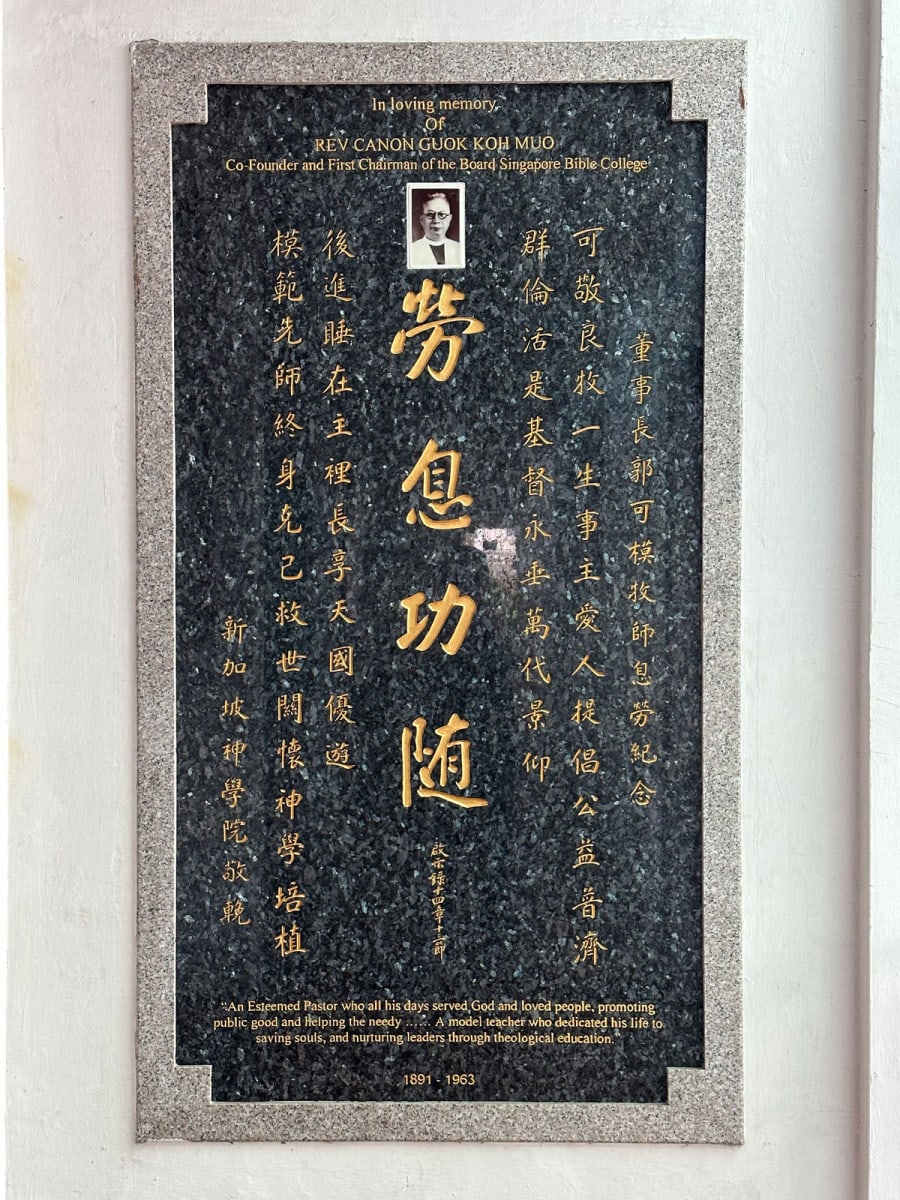 In loving memory
Of
REV CANON GUOK KOH MUO
Co-Founder and First Chairman of the Board Singapore Bible College
董事長郭可模牧師息勞紀念
可敬良牧一生事主愛人提倡公益普濟
群倫活是基督永垂萬代景仰
勞息功随
啟示錄十四章十三節
後進睡在主裡長享天國優遊
模範先師終身克己救世關懷神學培植
新加坡神學院敬輓
"An Esteemed Pastor who all his days served God and loved people, promoting
public good and helping the needy ...... A model teacher who dedicated his life to
saving souls, and nurturing leaders through theological education."
1891 - 1963